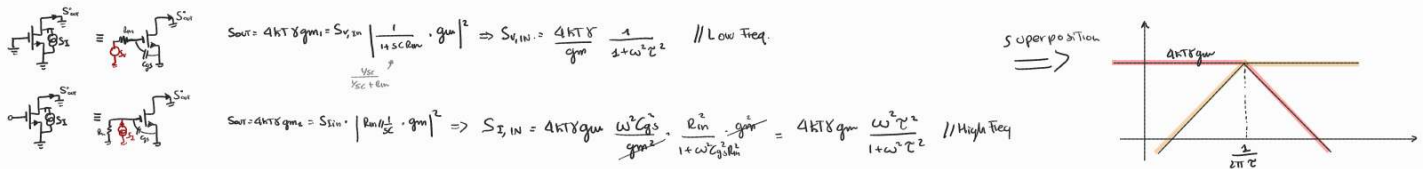 S°out
S_I
≡
Rin
S°out
S_V
Cgs
Sout = 4kTγgm₁ = S_V,in |1/(1+SCRin) · gm|² ⇒ S_V,IN. = 4kTγ/gm 1/(1+ω²τ²) //Low Freq.
1/SC / (1/SC + Rin)
S°out
S_I
≡
R
S_I
S°out
Cgs
Sout = 4kTγgm₂ = S_Iin · |Rin//1/SC · gm|² ⇒ S_I,IN = 4kTγgm ω²C²gs/gm² · Rin²/(1+ω²C²gsRin²) · gm² = 4kTγgm ω²τ²/(1+ω²τ²) //High Freq
superposition
⇒
4kTγgm
1/2πτ